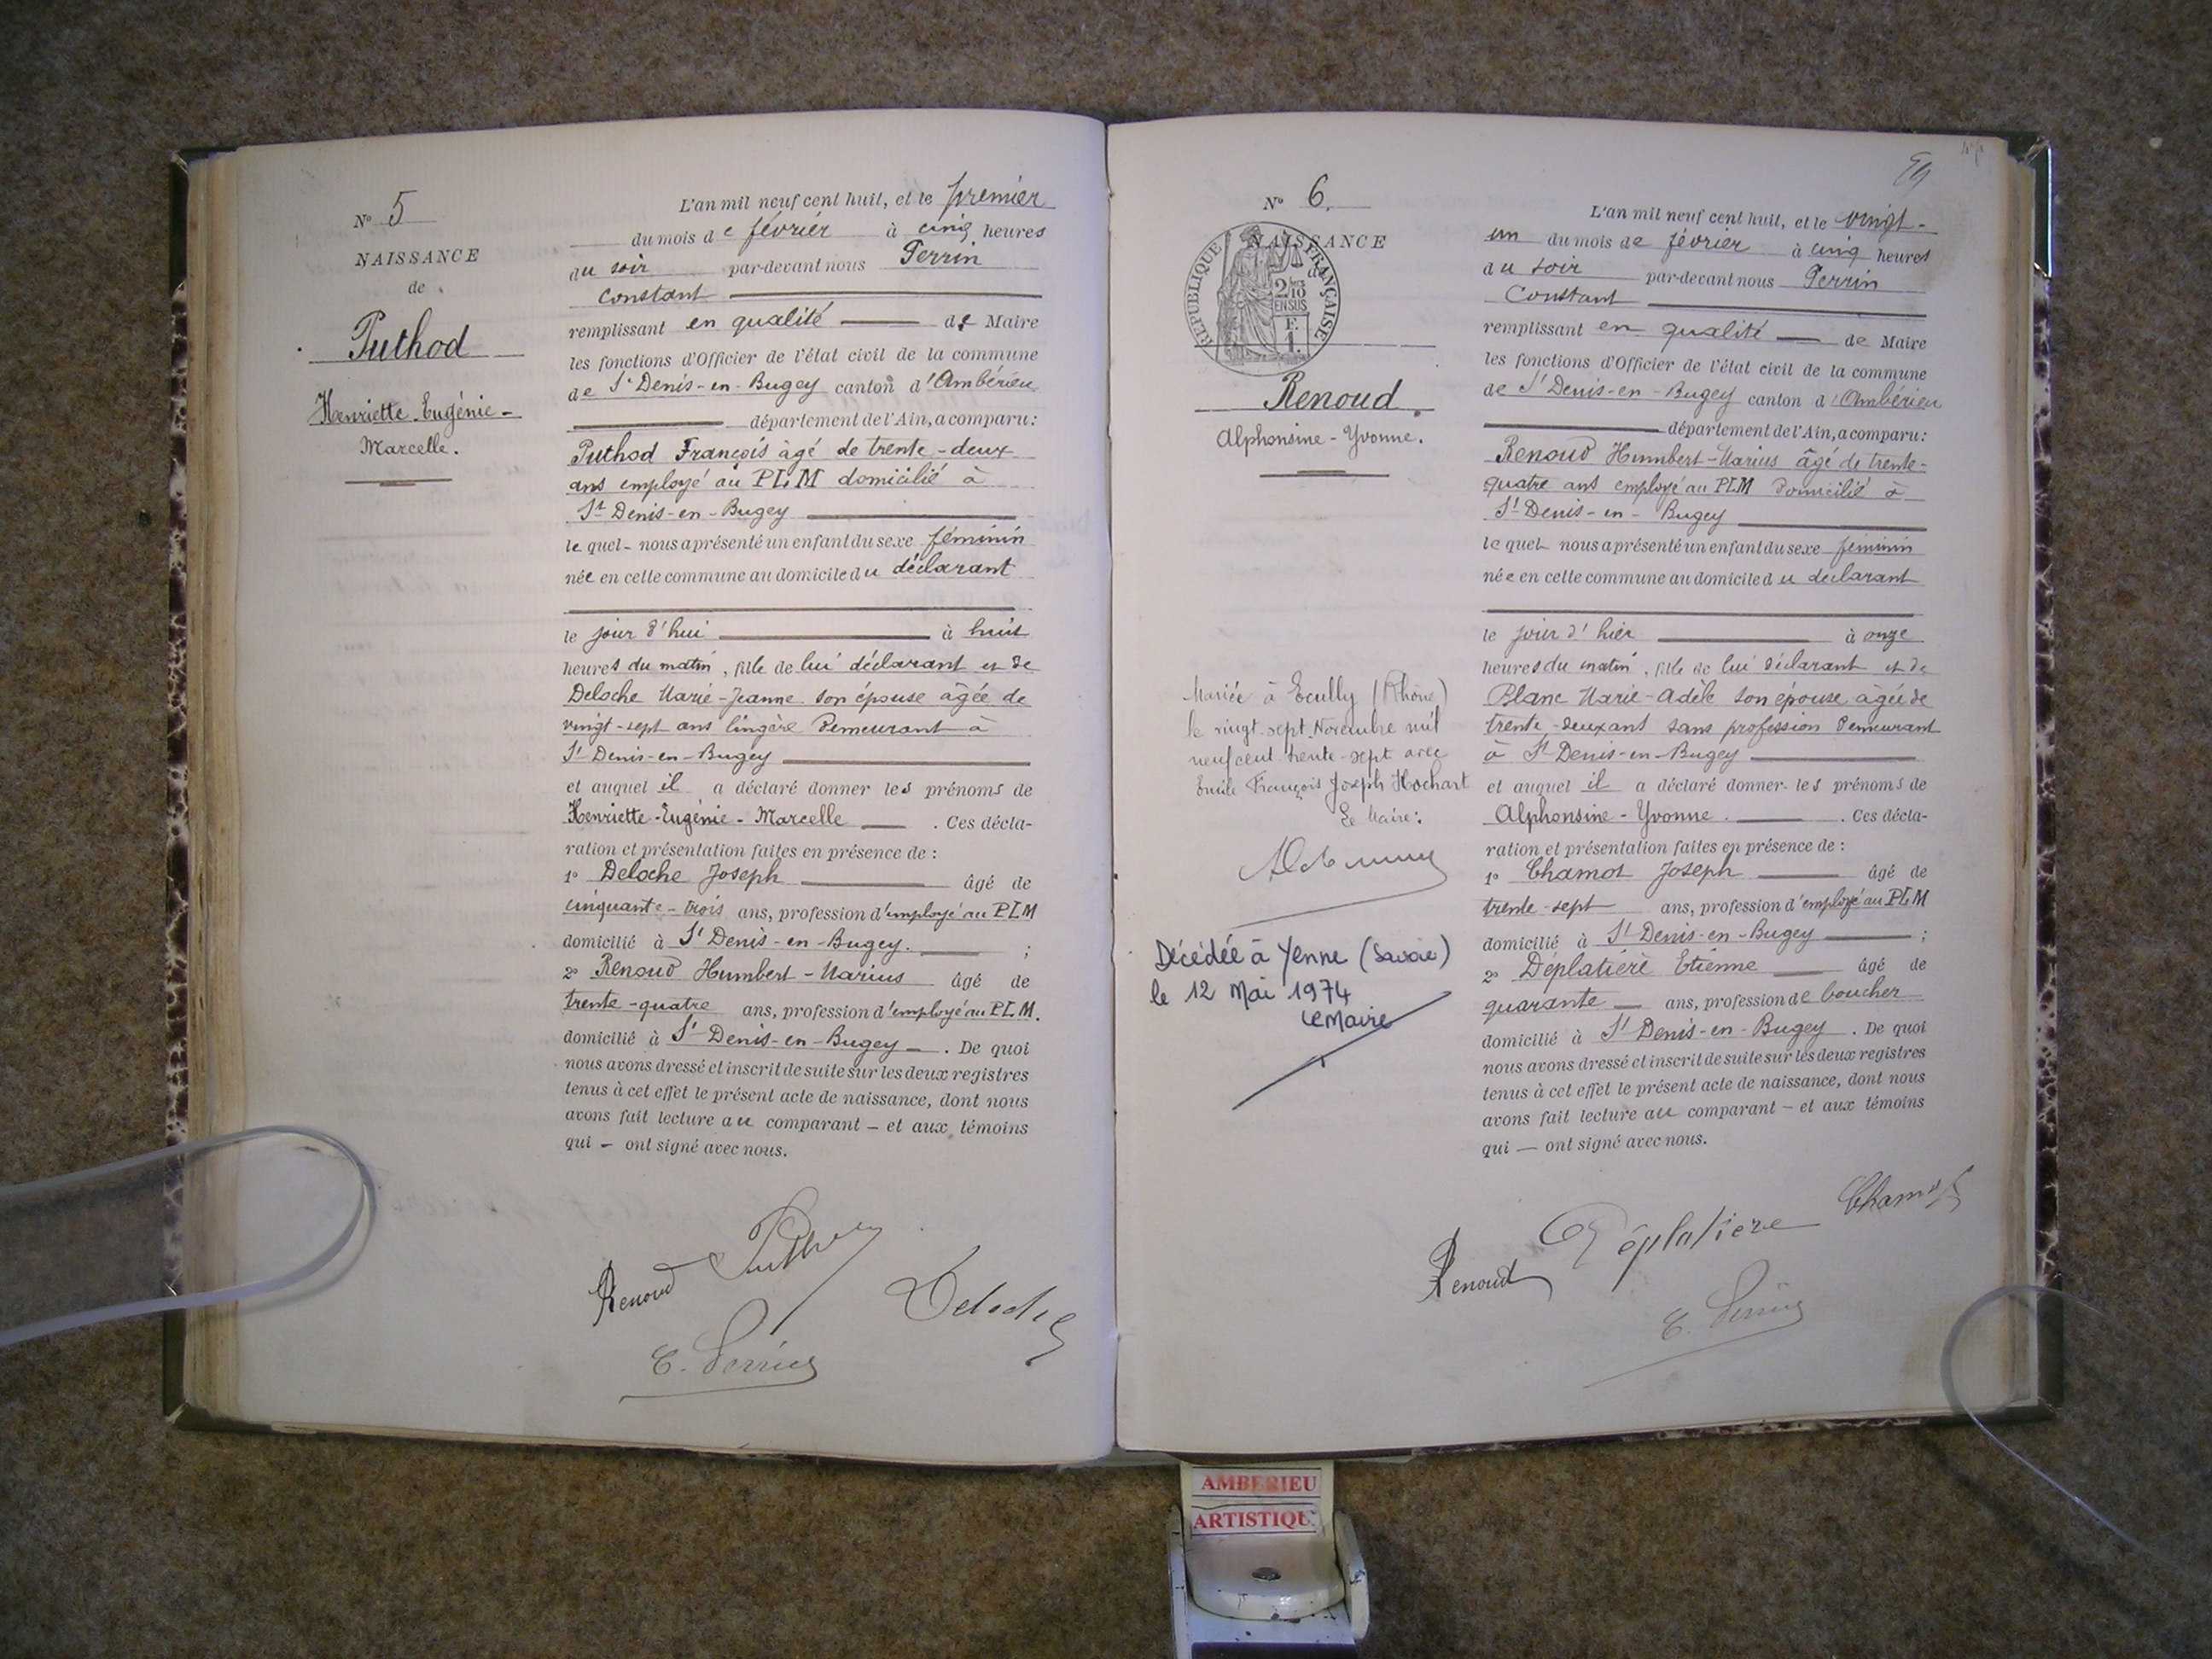 N° 5
NAISSANCE
de
Puthod
Henriette-Eugénie-
Marcelle.
L'an mil neuf cent huit, et le premier
du mois de février à cinq heures
du soir par-devant nous Perrin
Constant
remplissant en qualité de Maire
les fonctions d'Officier de l'état civil de la commune
de St Denis-en-Bugey canton d'Ambérieu
département de l'Ain, a comparu:
Puthod François âgé de trente-deux
ans employé au PLM domicilié à
St Denis-en-Bugey
lequel - nous a présenté un enfant du sexe féminin
née en cette commune au domicile du déclarant
le jour d'hui à huit
heures du matin, fille de lui déclarant et de
Deloche Marie-Jeanne son épouse âgée de
vingt-sept ans lingère demeurant à
St Denis-en-Bugey
et auquel il a déclaré donner les prénoms de
Henriette-Eugénie-Marcelle . Ces décla-
ration et présentation faites en présence de :
1° Deloche Joseph âgé de
cinquante-trois ans, profession d'employé au PLM
domicilié à St Denis-en-Bugey. ;
2° Renoud Humbert-Marius âgé de
trente-quatre ans, profession d'employé au PLM.
domicilié à St Denis-en-Bugey . De quoi
nous avons dressé et inscrit de suite sur les deux registres
tenus à cet effet le présent acte de naissance, dont nous
avons fait lecture au comparant - et aux témoins
qui - ont signé avec nous.
Puthod
Renoud
Deloche
C. Perrin
N° 6.
NAISSANCE
RÉPUBLIQUE FRANÇAISE
2/10
EN SUS
F.
1.
Renoud.
Alphonsine-Yvonne.
Mariée à Ecully (Rhône)
le vingt-sept Novembre mil
neuf cent trente-sept avec
Emile François Joseph Hochart
Le Maire:
Décédée à Yenne (Savoie)
le 12 Mai 1974
Le Maire
L'an mil neuf cent huit, et le vingt-
un du mois de février à cinq heures
du soir par-devant nous Perrin
Constant
remplissant en qualité de Maire
les fonctions d'Officier de l'état civil de la commune
de St Denis-en-Bugey canton d'Ambérieu
département de l'Ain, a comparu:
Renoud Humbert-Marius âgé de trente-
quatre ans employé au PLM domicilié à
St Denis-en-Bugey
lequel nous a présenté un enfant du sexe féminin
née en cette commune au domicile du déclarant
le jour d'hier à onze
heures du matin, fille de lui déclarant et de
Blanc Marie-Adèle son épouse âgée de
trente-deux ans sans profession demeurant
à St Denis-en-Bugey
et auquel il a déclaré donner les prénoms de
Alphonsine-Yvonne. . Ces décla-
ration et présentation faites en présence de :
1° Chamot Joseph âgé de
trente-sept ans, profession d'employé au PLM
domicilié à St Denis-en-Bugey ;
2° Déplatière Etienne âgé de
quarante ans, profession de boucher
domicilié à St Denis-en-Bugey . De quoi
nous avons dressé et inscrit de suite sur les deux registres
tenus à cet effet le présent acte de naissance, dont nous
avons fait lecture au comparant - et aux témoins
qui - ont signé avec nous.
Chamot
Déplatière
Renoud
C. Perrin
AMBERIEU
ARTISTIQU